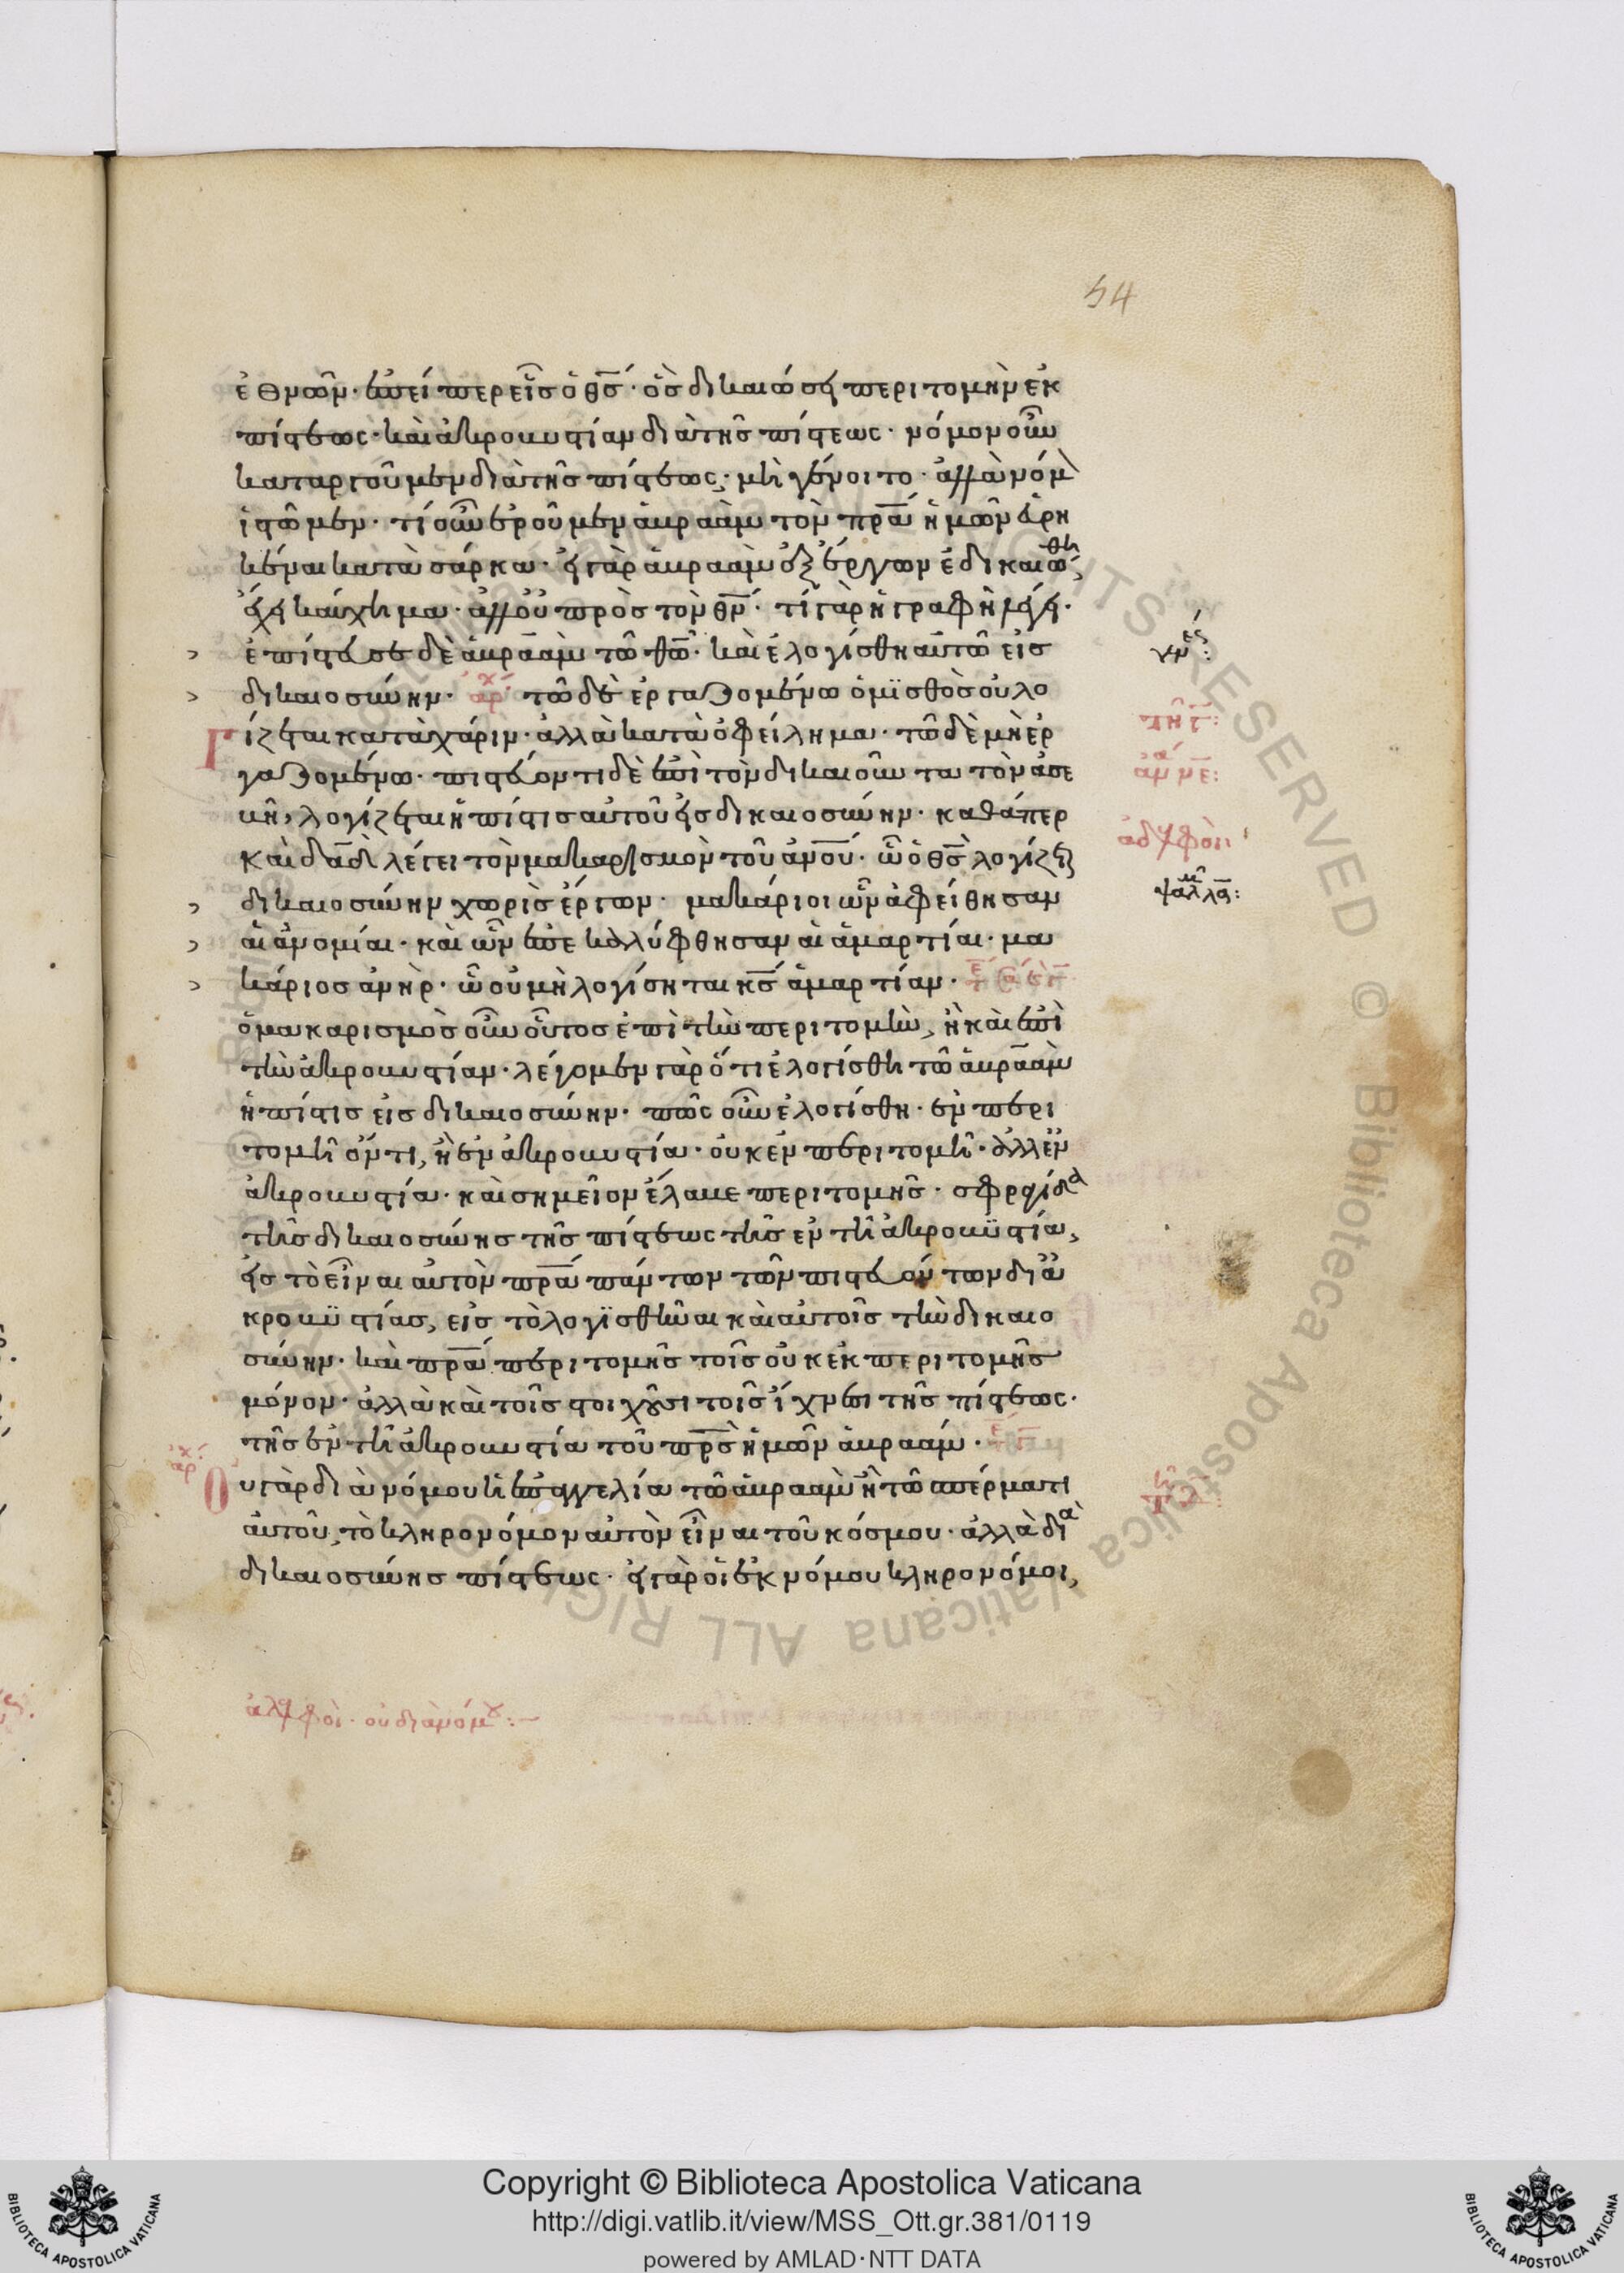 54
ἐθνῶν· ἐπείπερ εἷς ὁ θς· ὃς δικαιώσει περιτομὴν ἐκ
πίστεως· καὶ ἀκροβυστίαν διὰ τῆς πίστεως· νόμον οὖν
καταργοῦμεν διὰ τῆς πίστεως, μὴ γένοιτο· ἀλλὰ νόμον
ἱστῶμεν· τί οὖν ἐροῦμεν ἀβραὰμ τὸν πρα ἡμῶν εὑρη
κέναι κατὰ σάρκα· εἰ γὰρ ἀβραὰμ ἐξ ἔργων ἐδικαιώθη,
ἔχει καύχημα· ἀλλ' οὐ πρὸς τὸν θν· τί γὰρ ἡ γραφὴ λέγει·
ἐπίστευσε δὲ ἀβραὰμ τῶ θω· καὶ ἐλογίσθη αὐτῶ εἰς
γεν:
δικαιοσύνην· ἀρχ τῶ δὲ ἐργαζομένω ὁ μισθὸς οὐ λο
γίζεται κατὰ χάριν· ἀλλὰ κατὰ ὀφείλημα· τῶ δὲ μὴ ἐρ
γαζομένω· πιστεύοντι δὲ ἐπὶ τὸν δικαιοῦντα τὸν ἀσε
βῆ, λογίζεται ἡ πίστις αὐτοῦ εἰς δικαιοσύνην· καθάπερ
ἀδελφοὶ
καὶ δαδ λέγει τὸν μακαρισμὸν τοῦ ἀνου· ὧ ὁ θς λογίζεται
δικαιοσύνην χωρὶς ἔργων· μακάριοι ὧν ἀφείθησαν
ψαλλα:
αἱ ἀνομίαι· καὶ ὧν ἐπεκαλύφθησαν αἱ ἁμαρτίαι· μα
κάριος ἀνὴρ· ὧ οὐ μὴ λογίσηται κς ἁμαρτίαν·
ὁ μακαρισμὸς οὖν οὗτος ἐπὶ τὴν περιτομὴν, ἢ καὶ ἐπὶ
τὴν ἀκροβυστίαν· λέγομεν γὰρ ὅτι ἐλογίσθη τῶ ἀβραὰμ
ἡ πίστις εἰς δικαιοσύνην· πῶς οὖν ἐλογίσθη· ἐν περι
τομῆ ὄντι, ἢ ἐν ἀκροβυστία· οὐκ ἐν περιτομῆ· ἀλλ' ἐν
ἀκροβυστία· καὶ σημεῖον ἔλαβε περιτομῆς· σφραγίδα
τῆς δικαιοσύνης τῆς πίστεως τῆς ἐν τῆ ἀκροβυστία,
εἰς τὸ εἶναι αὐτὸν πρα πάντων τῶν πιστευόντων δι' ἀ
κροβυστίας, εἰς τὸ λογισθῆναι καὶ αὐτοῖς τὴν δικαιο
σύνην· καὶ πρα περιτομῆς τοῖς οὐκ ἐκ περιτομῆς
μόνον· ἀλλὰ καὶ τοῖς στοιχοῦσι τοῖς ἴχνεσι τῆς πίστεως·
τῆς ἐν τῆ ἀκροβυστία τοῦ πρς ἡμῶν ἀβραάμ·
ἀρχ
Οὐ γὰρ διὰ νόμου ἡ ἐπαγγελία τῶ ἀβραὰμ ἢ τῶ σπέρματι
αὐτοῦ, τὸ κληρονόμον αὐτὸν εἶναι τοῦ κόσμου· ἀλλὰ διὰ
δικαιοσύνης πίστεως· εἰ γὰρ οἱ ἐκ νόμου κληρονόμοι,
ἀδελφοὶ· οὐ διὰ νόμου:–
Copyright © Biblioteca Apostolica Vaticana
http://digi.vatlib.it/view/MSS_Ott.gr.381/0119
powered by AMLAD·NTT DATA
BIBLIOTECA APOSTOLICA VATICANA
BIBLIOTECA APOSTOLICA VATICANA